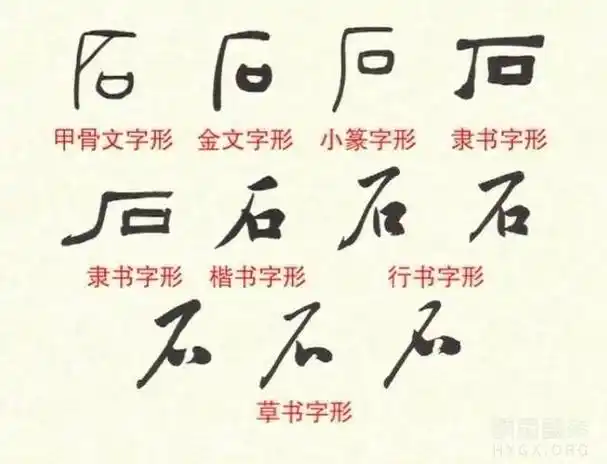 石 石 石 石
甲骨文字形 金文字形 小篆字形 隶书字形
石 石 石 石
隶书字形 楷书字形 行书字形
石 石 石
草书字形
HYGX.ORG